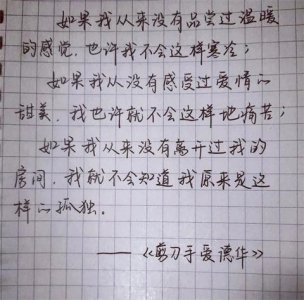 如果我从来没有品尝过温暖
的感觉，也许我不会这样寒冷；
如果我从没有感受过爱情的
甜美，我也许就不会这样地痛苦；
如果我从来没有离开过我的
房间，我就不会知道我原来是这
样的孤独。
——《剪刀手爱德华》